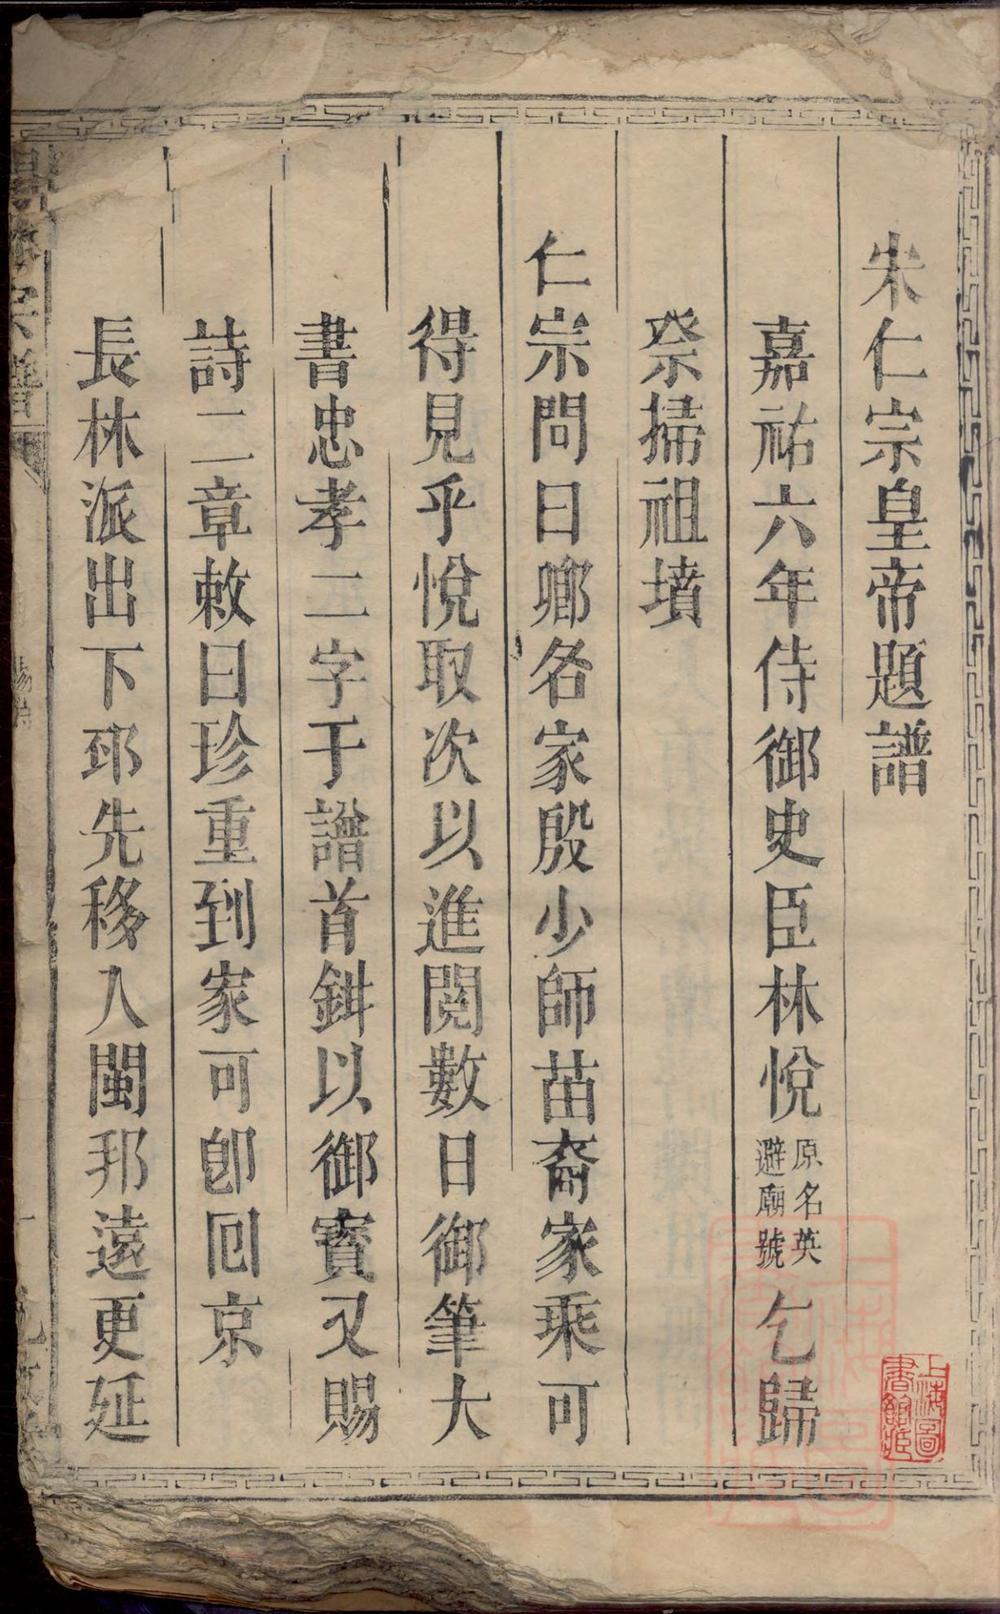 宋仁宗皇帝題譜
嘉祐六年侍御史臣林悅原名英避廟號乞歸
祭掃祖墳
仁宗問曰鄉名家殷少師苗裔家乘可
得見乎悅取次以進閱數日御筆大
書忠孝二字于譜首鈝以御寳又賜
詩二章敕曰珍重到家可卽囘京
長林派出下邳先移入閩邦遠更延
上海圖書館藏